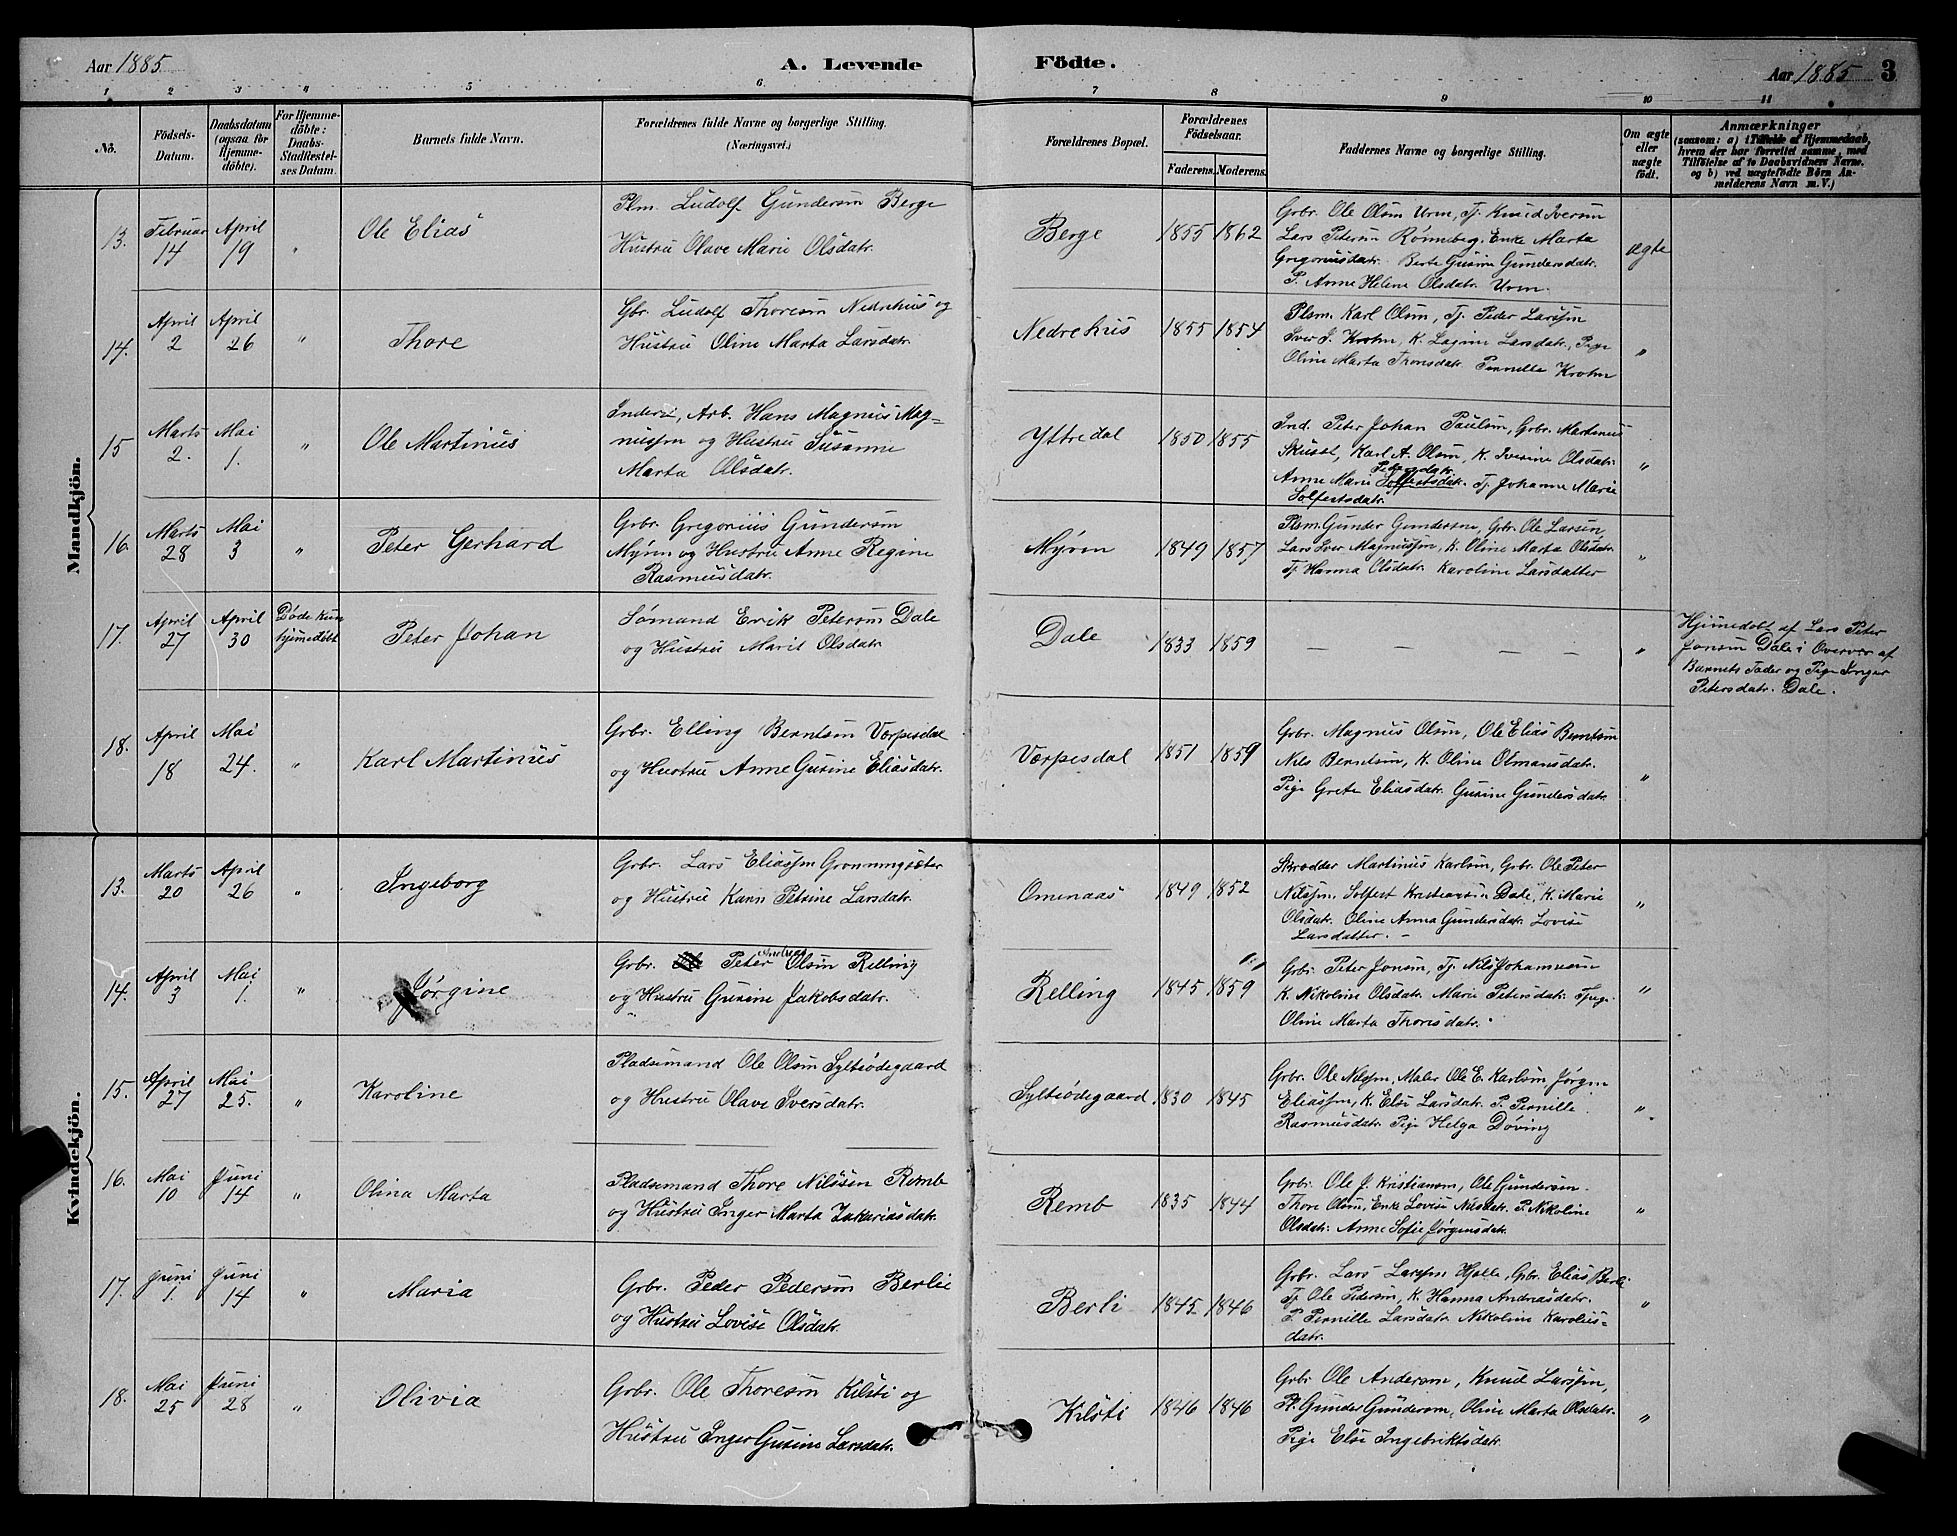 Aar 1885
A. Levende
Födte.
Aar 1885
3
1 2 3 4 5 6 7 8 9 10 11
No.
Födsels-Datum.
Daabsdatum (ogsaa for Hjemme-döbte).
For Hjemme-döbte: Daabs-Stadfæstel-ses Datum.
Barnets fulde Navn.
Forældrenes fulde Navne og borgerlige Stilling.
(Næringsvei.)
Forældrenes Bopæl.
Forældrenes Födselsaar.
Faderens. Moderens.
Faddernes Navne og borgerlige Stilling.
Om ægte eller uægte födt.
Anmærkninger
(saasom: a) i Tilfælde af Hjemmedaab,
hvem der har forrettet samme, med
Tilföielse af to Daabsvidners Navne,
og b) ved uægtefödte Börn An-
melderens Navn m. V.)
Mandkjön.
13. Februar 14 April 19 " Ole Elias
Plm. Ludolf Gundersøn Berge
Hustru Olave Marie Olsdatr.
Berge 1855 1862
Grbr. Ole Olsøn Urm, Tj. Knud Iversøn
Lars Petersøn Rønneberg. Enke Marta
Gregoriusdatr. Berte Gurine Gundersdatr.
P. Anne Helene Olsdatr. Urm.
ægte
14. April 2 April 26 " Thore
Gbr. Ludolf Thoresøn Nedrehus og
Hustru Oline Marta Larsdatr.
Nedrehus 1855 1854
Plsm. Karl Olsøn, Tj. Peder Larssøn
Iver J. Krohn, K. Larsdatr., Pige
Oline Marta Thorsdatr. Pernille Krohn
"
15 Marts 2. Mai 1. " Ole Martinus
Inders, Arb. Hans Magnus Mag-
nussøn og Hustru Susanne
Marta Olsdatr.
Yttredal 1850 1855
Ind. Peter Johan Paulsøn, Grbr. Martinus
Karl A. Olsøn, K. Iverine Olsdatr.
Petersdatr.
Anne Marie Solfestsdatr. Tj. Johanne Marie
Solfestsdatr.
"
16. Marts 28 Mai 3 " Peter Gerhard
Grbr. Gregorius Gundersøn
Myren og Hustru Anne Regine
Rasmusdatr.
Myren 1849 1857
Plsm. Gunder Gundersøn, Grbr. Ole Larsen,
Lars Iver Magnussøn, K. Oline Marta Olsdatr.
Tj. Hanna Olsdatr. Karoline Larsdatter
"
17. April 27 April 30 Døde kun hjemmedøbt Peter Johan
Sømand Erik Petersøn Dale
og Hustru Marit Olsdatr.
Dale 1833 1859 — — — — — "
Hjemmedøbt af Lars Peter
Jonsøn Dale i Overvær af
Barnets Fader og Pige Inger
Petersdatr. Dale.
18. April 18 Mai 24. " Karl Martinus
Grbr. Elling Berntsøn Værpesdal
og Hustru Anne Gurine Eliasdatr.
Værpesdal 1851 1859
Grbr. Magnus Olsøn, Ole Elias Berntsøn
Nils Berntsøn, K. Oline Olmansdatr.
Pige Grete Eliasdatr. Gurine Gundersdatr.
"
Kvindekjön.
13. Marts 20 April 26 " Ingeborg
Grbr. Lars Eliassøn Grønningsæter
og Hustru Karen Petrine Larsdatr.
Omenaas 1849 1852
Skrædder Martinus Karlsøn, Grbr. Ole Peter
Nilssøn, Solfest Kristiansøn Dale, K. Marie
Olsdatr. Oline Anna Gundersdatr. Lovise
Larsdatter. -
"
14. April 3 Mai 1. " Jørgine
Grbr. Peter Andreas Olsøn Relling
og Hustru Gurine Jakobsdatr.
Relling 1845 1859
Grbr. Peter Jonsøn, Tj. Nils Johannesøn
K. Nikoline Olsdatr. Marie Petersdatr. Tpige
Oline Marta Thorisdatr.
"
15. April 27 Mai 25. " Karoline
Pladsemand Ole Olsøn Syltødegaard
og Hustru Olave Iversdatr.
Syltødegaard. 1830 1845
Grbr. Ole Nilssøn, Maler Ole E. Karlsøn, Jørgen
Eliassøn, K. Else Larsdatr. P. Pernille
Rasmusdatr. Pige Helga Døving
"
16. Mai 10 Juni 14 " Olina Marta
Pladsemand Thore Nilssøn Remb
og Hustru Inger Marta Zakariasdatr.
Remb 1835 1844
Grbr. Ole J. Kristiansøn, Ole Gundersøn.
Thore Olsøn, Enke Lovise Nilsdatr. P. Nikoline
Olsdatr. Anne Sofie Jørgensdatr.
"
17. Juni 1. Juni 14 " Maria
Grbr. Peder Pedersøn Berlie
og Hustru Lovise Olsdatr.
Berli 1845 1846
Grbr. Lars Larssøn Hjelle, Gbr. Elias Berli
Tj. Ole Pedersøn, K. Hanna Andreasdatr.
P. Pernille Larsdatr. Nikoline Karolus-
datr.
"
18. Mai 25 Juni 28 " Olivia
Grbr. Ole Thoresøn Kilsti og
Hustru Inger Gurine Larsdatr.
Kilsti 1846 1846
Grbr. Ole Andersøn, Knud Larssøn,
Pl. Gunder Gundersøn, Oline Marta Olsdatr.
Pige Else Ingebriktsdatr.
"